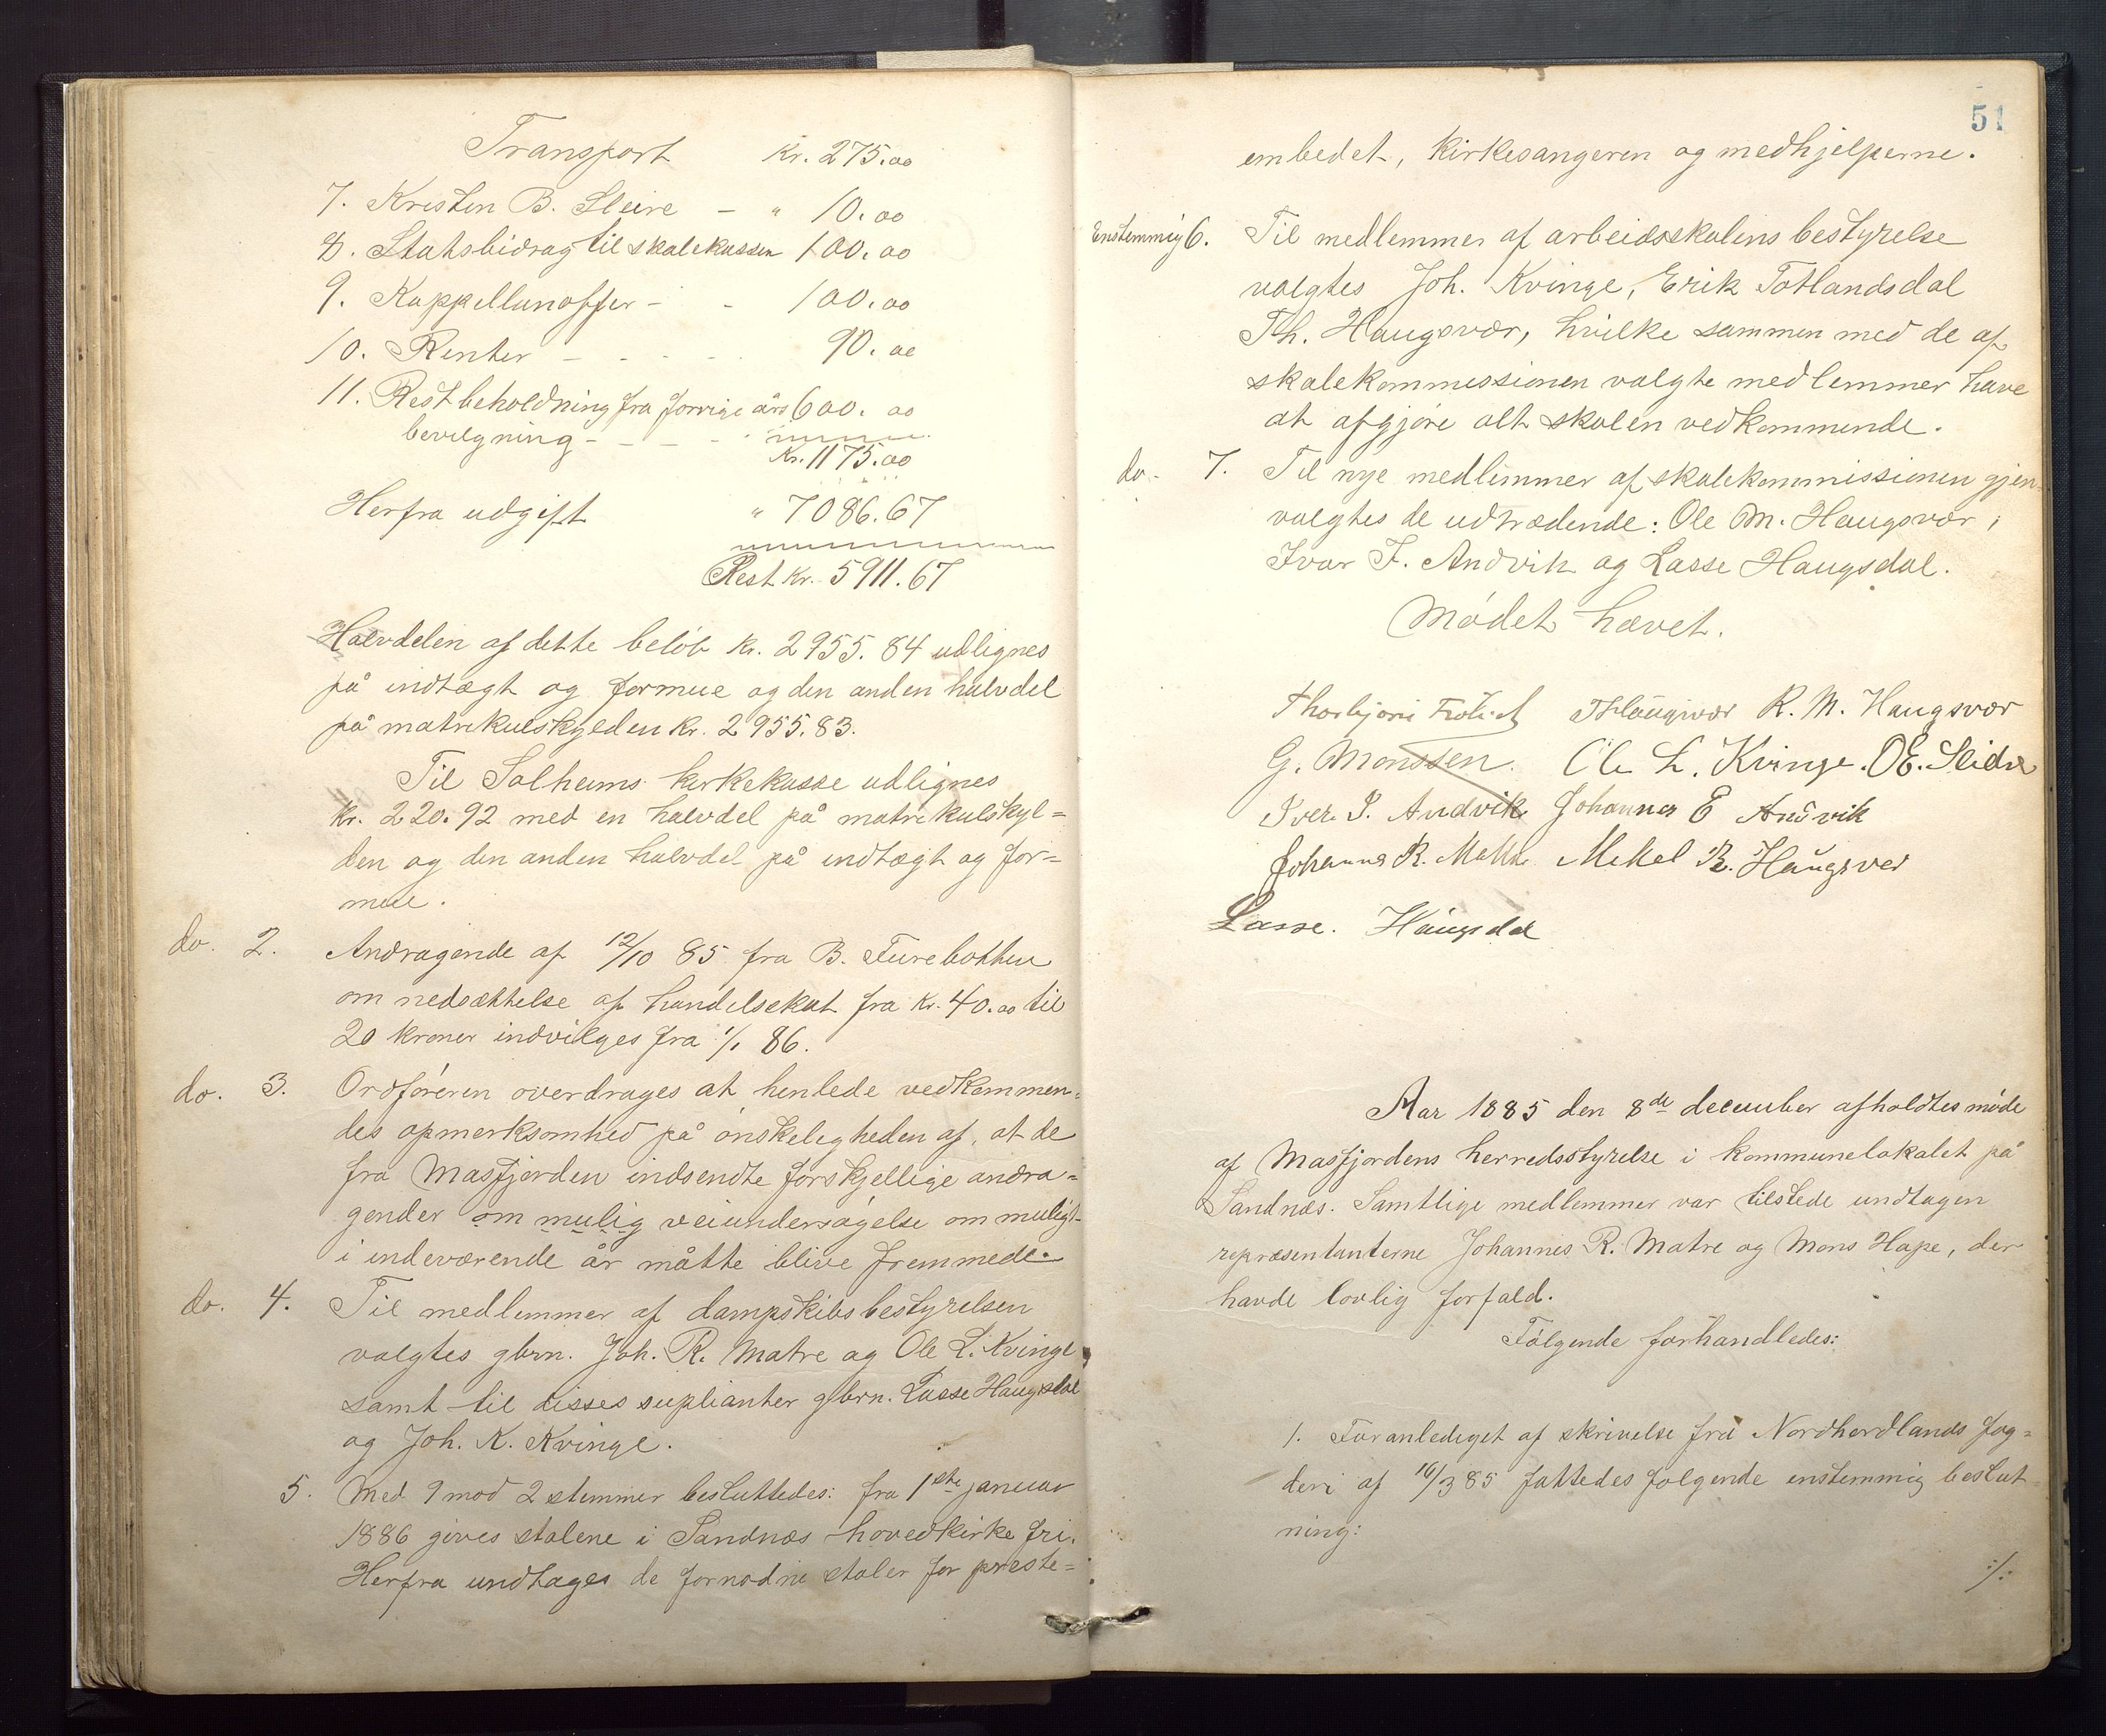 Transport Kr. 275.00
7. Kristen B. Sleire - " 10.00
8. Statsbidrag til skolekassen 100.00
9. Kappellanoffer - - 100.00
10. Renter - - - - 90.00
11. Restbeholdning fra forrige års 600.00
bevilgning - - - -
Kr. 1175.00
Herfra udgift " 7086.67
Rest Kr. 5911.67
Halvdelen af dette beløb Kr. 2955.84 udlignes
på indtægt og formue og den anden halvdel
på matrikulskylden Kr. 2955.83.
Til Solheims kirkekasse udlignes
Kr. 220.92 med en halvdel på matrikulskyl=
den og den anden halvdel på indtægt og for=
mue.
do. 2. Andragende af 12/10 85 fra B. Furebotten
om nedsættelse af handelsskat fra Kr. 40.00 til
20 kroner indvilges fra 1/1 86.
do. 3. Ordføreren overdrages at henlede vedkommen=
des opmerksomhed på ønskeligheden af, at de
fra Masfjorden indsendte forskjellige andra=
gender om mulig veiundersøgelse om muligt
i indeværende år måtte blive fremmede.
do. 4. Til medlemmer af dampskibsbestyrelsen
valgtes gbrn. Joh. R. Matre og Ole L. Kvinge
samt til disses suplianter gbrn. Lasse Haugsdal
og Joh. K. Kvinge.
5. Med 9 mod 2 stemmer besluttedes: fra 1ste januar
1886 gives stolene i Sandnæs hovedkirke fri.
Herfra undtages de fornødne stoler for preste=
51
embedet, kirkesangeren og medhjelperne.
Enstemmig 6. Til medlemmer af arbeidsskolens bestyrelse
valgtes Joh. Kvinge, Erik Totlandsdal
Th. Haugsvær, hvilke sammen med de af
skolekommissionen valgte medlemmer have
at afgjøre alt skolen vedkommende.
do. 7. Til nye medlemmer af skolekommissionen gjen
valgtes de udtrædende: Ole M. Haugsvær,
Ivar I. Andvik og Lasse Haugsdal.
Mødet hævet.
Thorbjørn Frölich THaugsvær R. M. Haugsvær
G. Monssen. Ole L. Kvinge. OE. Sleire
Iver I. Andvik Johannes E Andvik
Johannes R. Matre Mikel R. Haugsver
Lasse. Haugsdal
Aar 1885 den 8de december afholdtes møde
af Masfjordens herredsstyrelse i kommunelokalet på
Sandnæs. Samtlige medlemmer var tilstede undtagen
repræsentanterne Johannes R. Matre og Mons Hope, der
havde lovlig forfald.
Følgende forhandledes:
1. Foranlediget af skrivelse fra Nordhordlands fog=
deri af 16/3 85 fattedes følgende enstemmig beslut
ning:
:/: